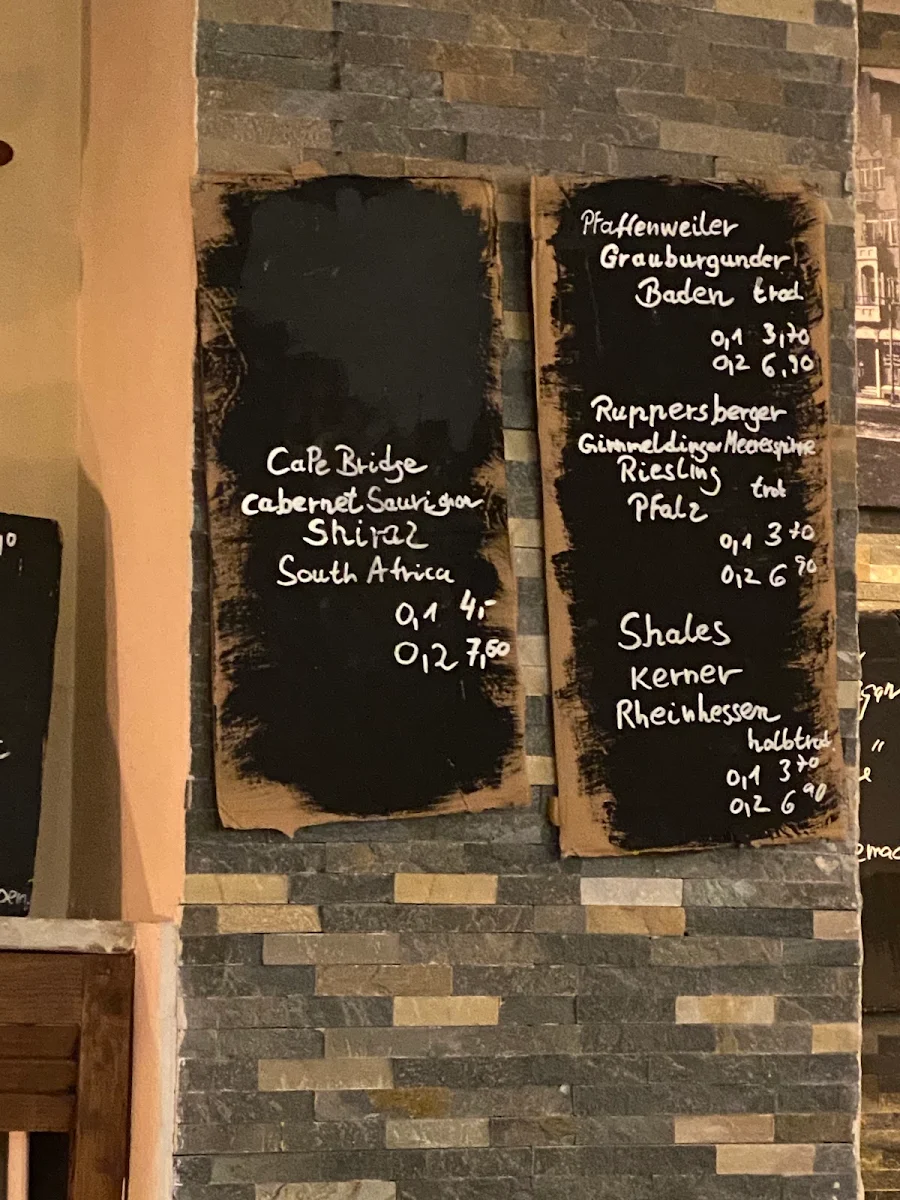 CaPe Bridge
Cabernet Sauvignon
Shiraz
South Africa
0,1 4,-
0,2 7,60
Pfaffenweiler
Grauburgunder
Baden trock
0,1 3,70
0,2 6,90
Ruppersberger
Gimmeldinger Meerespinne
Riesling
trok
Pfalz
0,1 3 70
0,2 6 90
Shales
Kerner
Rheinhessen
halbtrock.
0,1 3 70
0,2 6 90